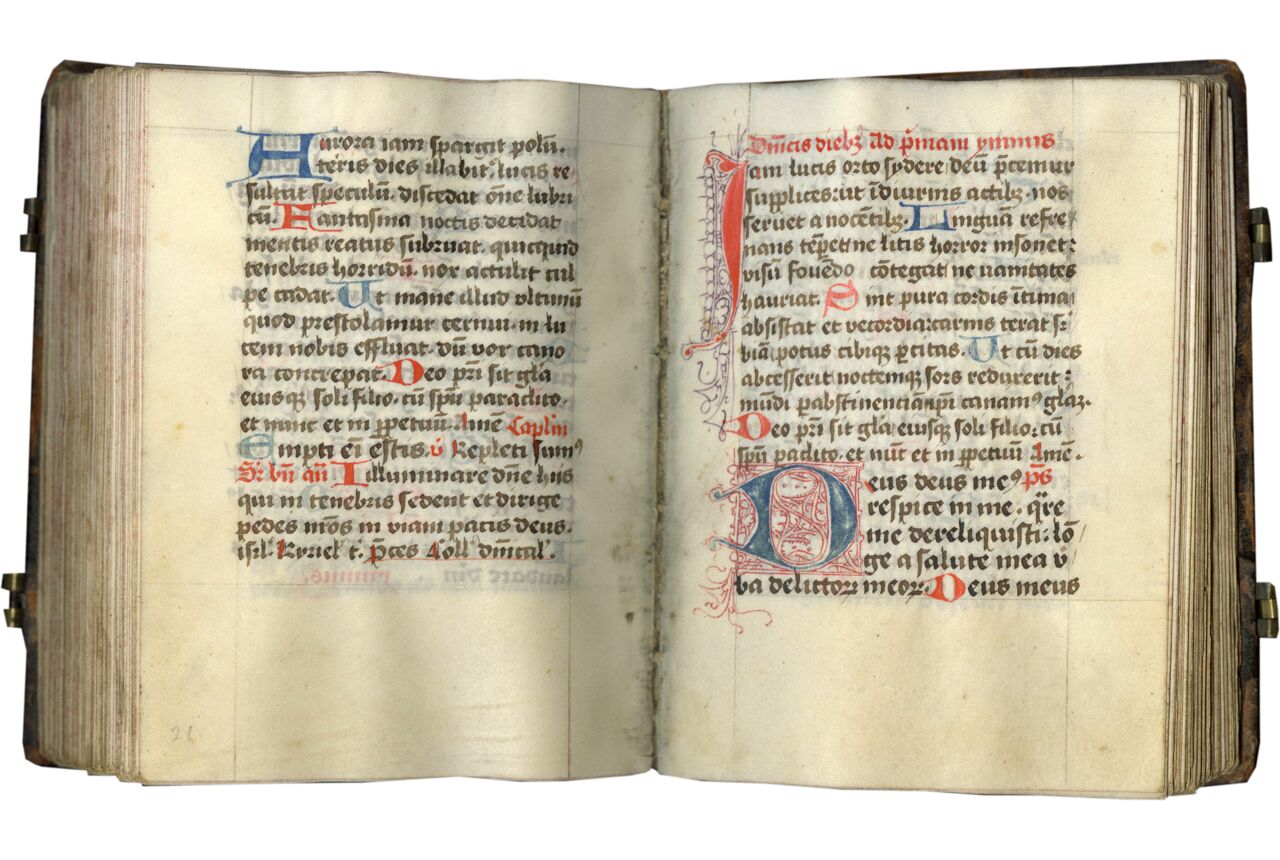 Aurora iam spargit polū.
terris dies illabit᷑. lucis re
sultat speculū. discedat om̄e lubri
cū. Fantasma noctis decidat
mentis reatus subruat. quicquid
tenebris horridū. nox attulit cul
pe cadat. Ut mane illud vltimū
quod prestolamur cernui. in lu
cem nobis effluat. dū vox cano
ra concrepat. Deo pr̄i sit gl̄a
eiusqꝫ soli filio. cū spū paraclito.
et nunc et in ꝑpetuū. Amē Caplm̄
Empti eī estis. v̄ Repleti sumꝰ
Illuminare dn̄e hiis
qui in tenebris sedent et dirige
pedes nr̄os in viam pacis deus.
isrl̄. Kyriel' Pces Coll' dn̄ical'.
Dn̄icis diebꝫ Ad p̄mam ymnus
Iam lucis orto sydere deū p̄cemur
supplices. vt ī diurnis actibꝫ. nos
seruet a nocētibꝫ. Linguā refre
nans tēperet ne litis horror insonet:
visū fouendo cōtegat ne uanitates
hauriat. Sint pura cordis ītima
absistat et vecordia. carnis terat sꝛ
biā potus cibiqꝫ ꝑcitas. Ut cū dies
abcesserit noctemqꝫ sors reduxerit:
mūdi ꝑ abstinenciā ip̄i canamꝰ gl̄aꝫ.
Deo pr̄i sit gl̄a eiusqꝫ soli filio: cū
spū pa᷑clito. et nūc et in ꝑpetuū Amē.
Deus deus meꝰ p̄s
respice in me. qr̄e
me dereliquisti: lō
ge a salute mea v̄
ba delictoꝝ meoꝝ. Deus meus